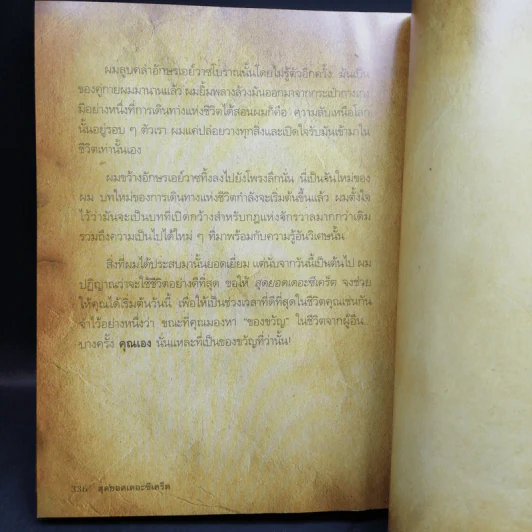 ผมลูบคลำอักษรเอย์วาซโบราณนั้นโดยไม่รู้ตัวอีกครั้ง มันเป็น
ของคู่กายผมมานานแล้ว ผมยิ้มพลางล้วงมันออกมาจากกระเป๋ากางเกง
มีอย่างหนึ่งที่การเดินทางแห่งชีวิตได้สอนผมก็คือ ความลับเหนือโลก
นั้นอยู่รอบ ๆ ตัวเรา ผมแค่ปล่อยวางทุกสิ่งและเปิดใจรับมันเข้ามาใน
ชีวิตเท่านั้นเอง
ผมขว้างอักษรเอย์วาซทิ้งลงไปยังโพรงลึกนั้น นี่เป็นจันใหม่ของ
ผม บทใหม่ของการเดินทางแห่งชีวิตกำลังจะเริ่มต้นขึ้นแล้ว ผมตั้งใจ
ไว้ว่ามันจะเป็นบทที่เปิดกว้างสำหรับกฎแห่งจักรวาลมากกว่าเดิม
รวมถึงความเป็นไปได้ใหม่ ๆ ที่มาพร้อมกับความรู้อันวิเศษนั้น
สิ่งที่ผมได้ประสบมานั้นยอดเยี่ยม แต่นับจากวันนี้เป็นต้นไป ผม
ปฏิญาณว่าจะใช้ชีวิตอย่างดีที่สุด ขอให้ สุดยอดเดอะซีเคร็ต จงช่วย
ให้คุณได้เริ่มต้นวันนี้ เพื่อให้เป็นช่วงเวลาที่ดีที่สุดในชีวิตคุณเช่นกัน
จำไว้อย่างหนึ่งว่า ขณะที่คุณมองหา "ของขวัญ" ในชีวิตจากผู้อื่น
บางครั้ง คุณเอง นั่นแหละที่เป็นของขวัญที่ว่านั้น!
336 สุดยอดเดอะซีเคร็ต